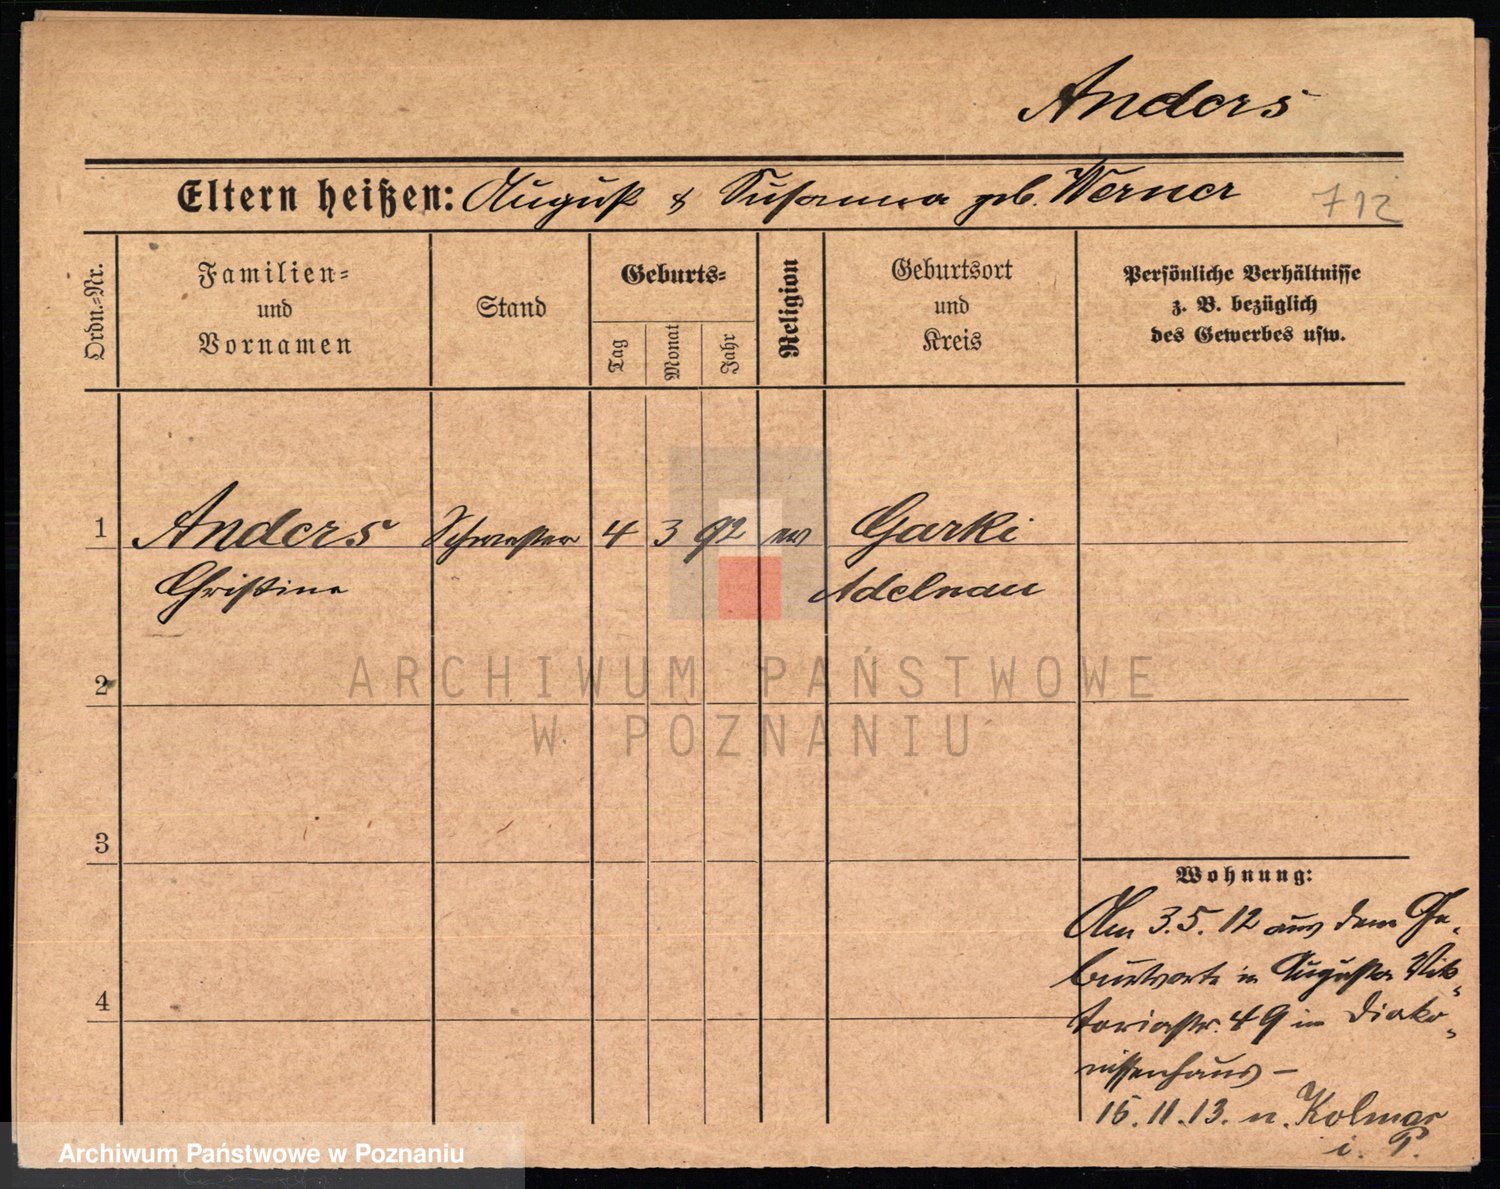 Anders
Eltern heißen: August & Susanna geb. Werner 712
Ordn.-Nr.
Familien-
und
Vornamen
Stand
Geburts-
Tag
Monat
Jahr
Religion
Geburtsort
und
Kreis
Persönliche Verhältnisse
z. B. bezüglich
des Gewerbes usw.
1 Anders Schwester 4 3 92 ev Garki
Christine Adelnau
2
ARCHIWUM PAŃSTWOWE
W POZNANIU
3
Wohnung:
Am 3.5.12 aus dem Ge-
burtsorte in Augusta Vik-
toriastr. 49 im Diako-
nissenhaus –
4
15.11.13. n. Kolmar
i. P.
Archiwum Państwowe w Poznaniu